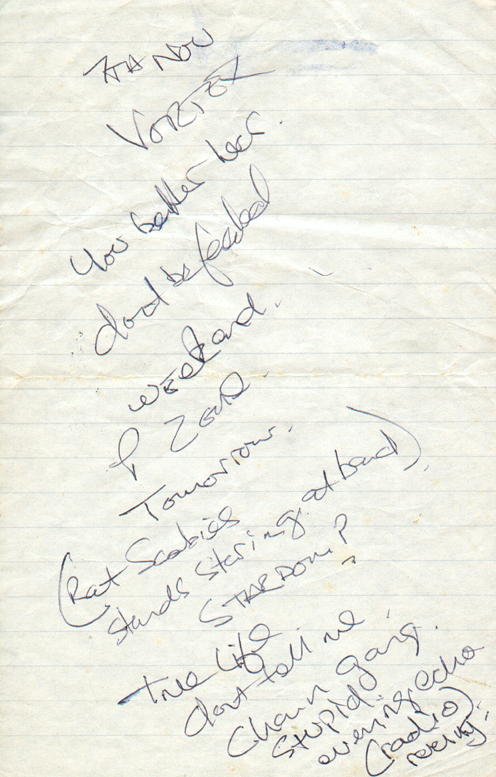 7TH NOV
VORTEX
You better hear.
dont be fooled
weekend.
P Zone.
Tomorrow.
(Rat Scabies
stands staring at band)
STARDOM?
True Life
dont tell me
Chain gang.
Stupid.
evening echo
(radio)